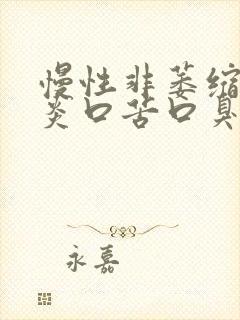 慢性非萎缩
炎口苦口臭
永嘉